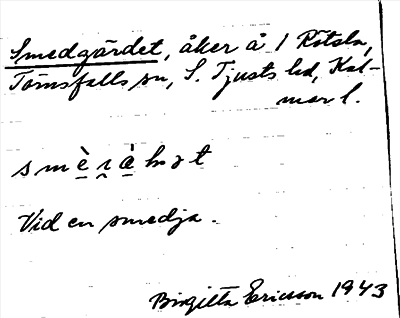 Smedgärdet, åker å 1 Rötsla,
Törnsfalls sn, S. Tjusts hd, Kal-
mar l.
Vid en smedja.
Birgitta Ericsson 1943